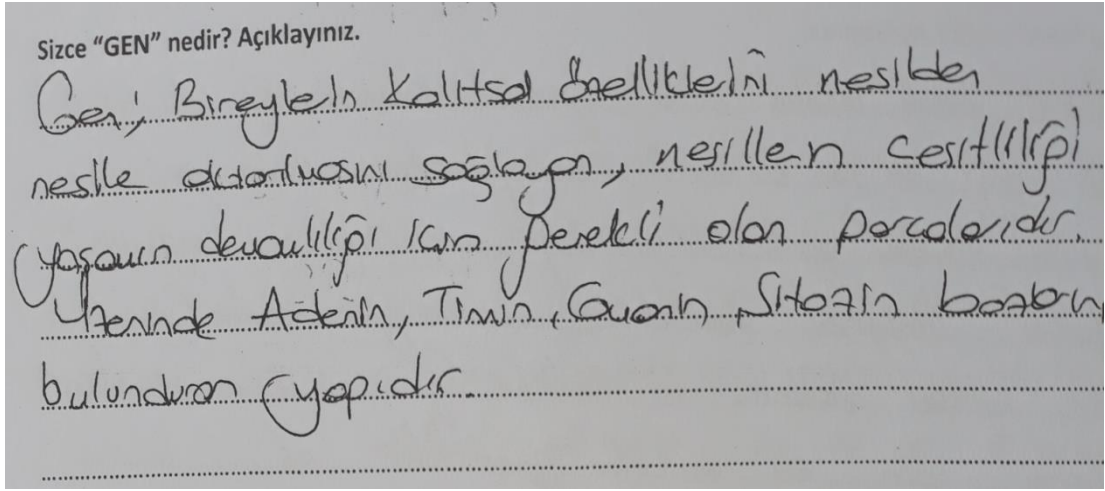 Sizce “GEN” nedir? Açıklayınız.
Gen; Bireylerin Kalıtsal özelliklerini nesilden
nesile aktarılmasını sağlayan, nesillerin çesitliliği
yaşamın devamlılığı için gerekli olan parçalarıdır.
Üzerinde Adenin, Timin, Guanin, Sitozin bazların
bulunduran yapıdır.